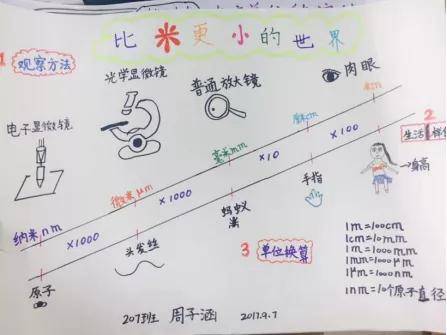 比米更小的世界
1 观察方法
光学显微镜
普通放大镜
肉眼
电子显微镜
纳米nm
×1000
微米μm
×1000
毫米mm
×10
厘米cm
×100
米m
2
生活
身高
手指
蚂蚁
头发丝
原子
3 单位换算
1m=100cm
1cm=10mm
1m=1000mm
1mm=1000μm
1μm=1000nm
1nm=10个原子直径
207班 周子涵 2017.9.7